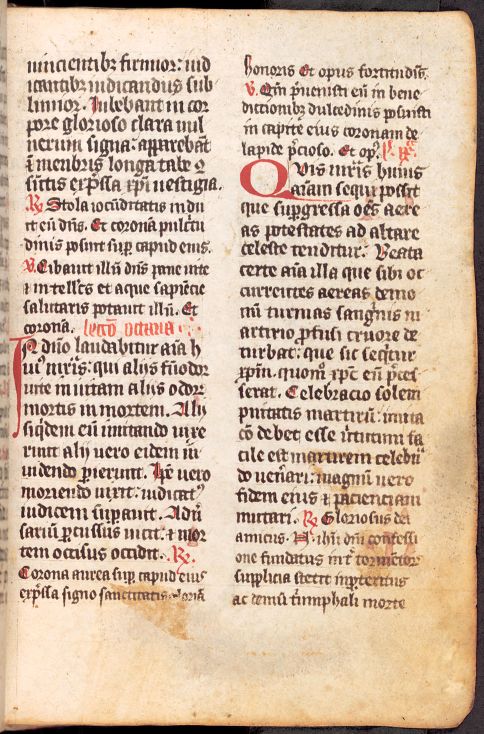 iudicandus sub
limior. Iulebant in cor
pore glorioso clara uul
nerum signa: apparebāt
ī menbris longa tabe
expssa xpi uestigia.
℟ Stola iocūditatis indu
it eū dn̄s. Et coronā pulcritu
dinis posuit sup caput eius.
℣ Cibauit illū dn̄s pane uite
⁊ intellc̄s et aque sapiētie
salutaris potauit illū. Et
corona. lectō octaua
In dn̄o laudabitur aīa h
uiꝰ mr̄is: qui aliis fuit odor
uite in uitam aliis odor
mortis in mortem. Alii
siqdem eū imitando uixe
runt alii uero eidem in
uidendo perierunt. Hic uero
moriendo uixit: iudicatꝰ
iudicem supauit. Adu
sariū percussus uicit. ⁊ mor
tem occisus occidit. ℟
Corona aurea sup caput eiꝰ
expssa signo sanctitatis gloria
honoris Et opus fortitudīs.
℣ Qm̄ pueniisti eū in bene
dictionibꝫ dulcedinis posuisti
in capite eius coronam de
lapide pcioso. Et opꝰ
Quis mr̄is huius
aīam sequi possit
que supgressa oēs aere
as potestates ad altare
celeste tenditur. Beata
certe aīa illa que sibi oc
currentes aereas demo
nū turmas sanguīs in
artirio pfusi cruore de
turbat: que sic seqitur
xpm̄. quom̄ xpc eū pces
serat. Celebracio solem
pnitatis martirū: imita
cō debet esse uirtutum fa
cile est martirem celebrā
do uen̄ari: magnū uero
fidem eius ⁊ pacienciam
imitari. ℟ Gloriosus dei
amicus. ihū dn̄i confessi
one fundatus int̄ tormētor
supplicia stetit impteritus
ac demū triumphali morte